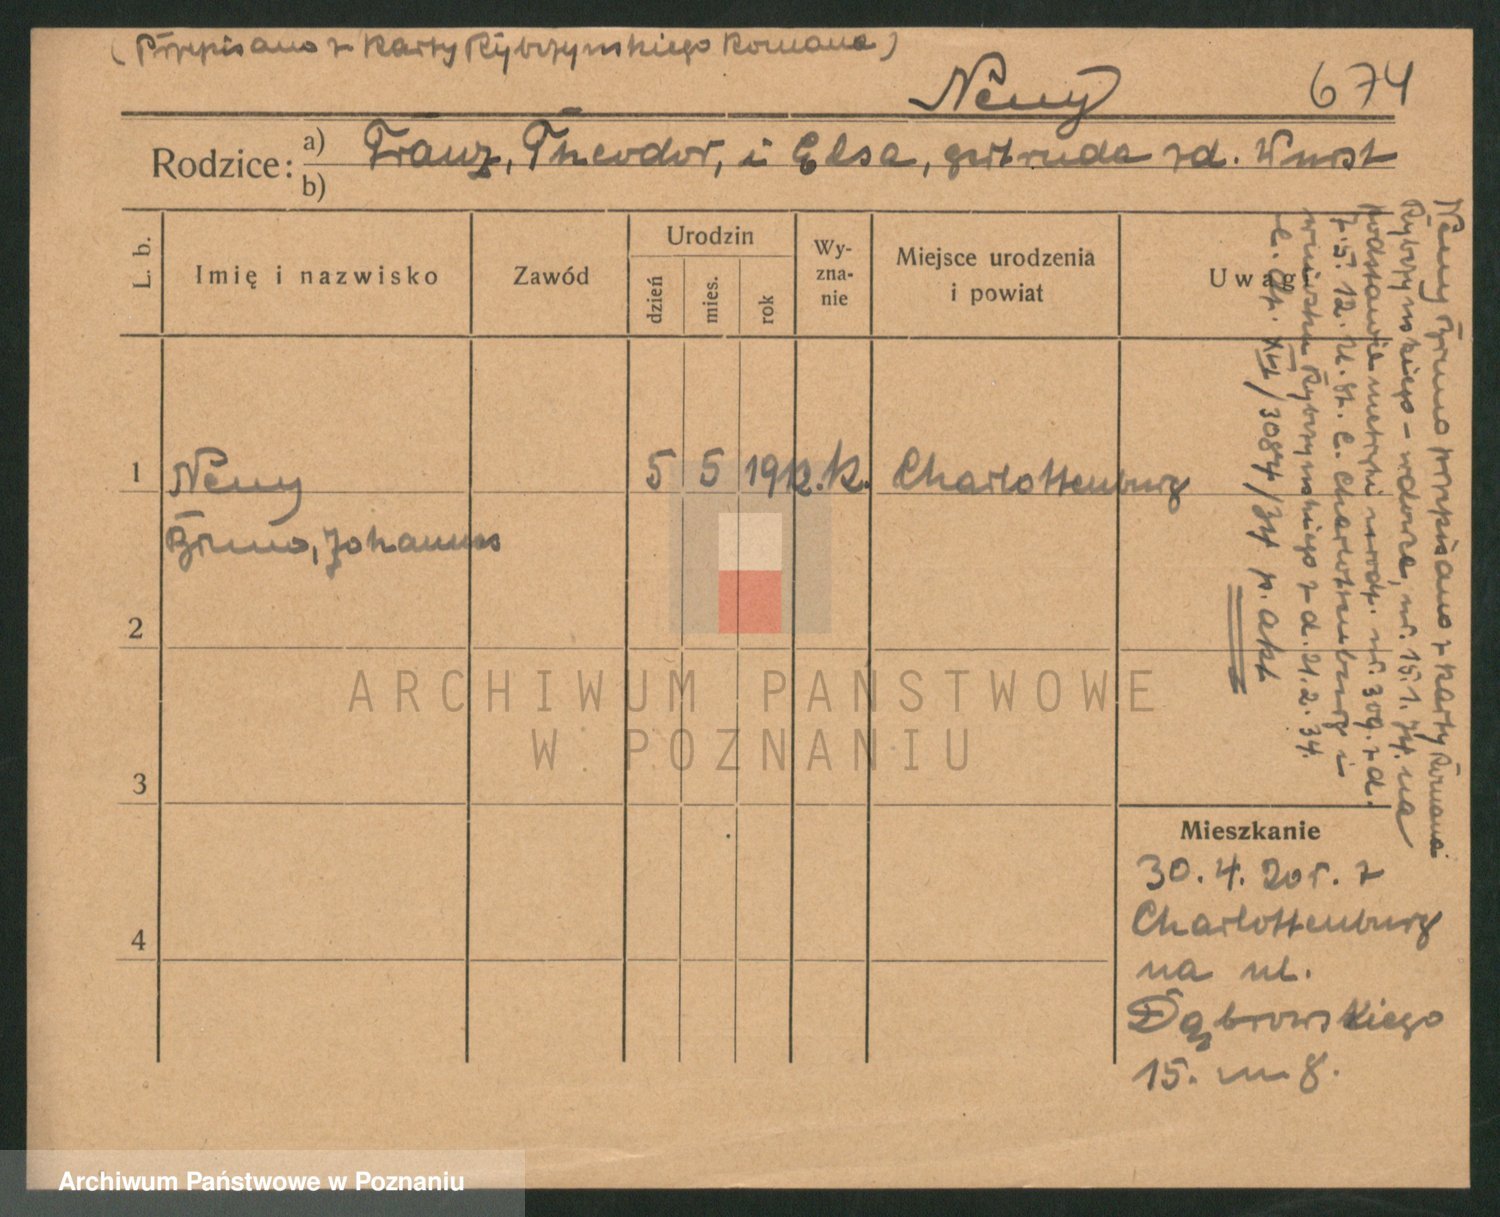 (Przepisano z karty Rybczyńskiego Romana)
Némy 674
Rodzice: a) Franz, Theodor, i Elsa, gertruda zd. Wurst
b)
L. b. Imię i nazwisko Zawód Urodzin dzień mies. rok Wy-zna-nie Miejsce urodzenia i powiat Uwagi
1 Némy 5 5 1912. k. Charlottenburg
Bruno, Johannes
2
3
4
Némy Bruno przepisano z karty Romana
Rybczyńskiego - wdowca, nr. 15.1.74. na
podstawie metryki urodz. nr. 309. z d.
7.5.12. U. St. C. Charlottenburg i
wniosku Rybczyńskiego z d. 21.2.34.
L. dz. XII/3087/34 p. akt
Mieszkanie
30. 4. 20r. z
Charlottenburg
na ul.
Dąbrowskiego
15. m 8.
ARCHIWUM PAŃSTWOWE
W POZNANIU
Archiwum Państwowe w Poznaniu